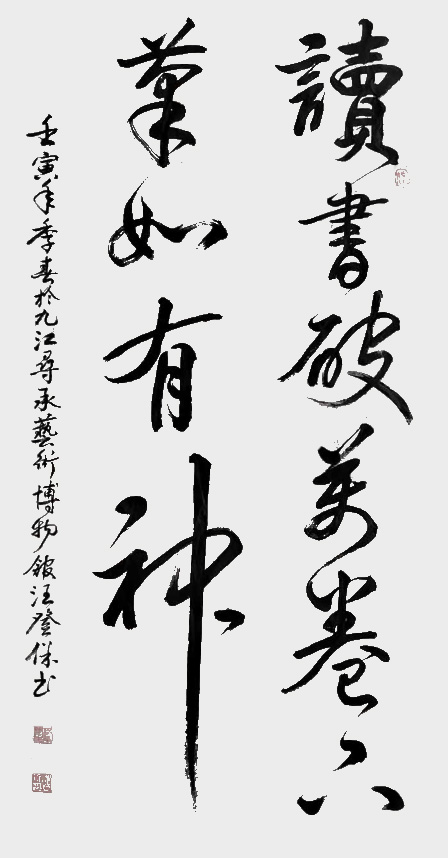 讀書破萬卷下
筆如有神
壬寅年季春於九江尋承藝術博物館汪登保書